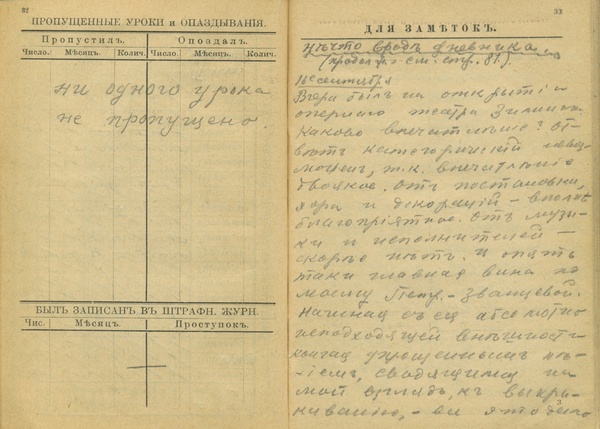 32
ПРОПУЩЕННЫЕ УРОКИ и ОПАЗДЫВАНІЯ.
Пропустилъ. Опоздалъ.
Число. Мѣсяцъ. Колич. Число. Мѣсяцъ. Колич.
ни одного урока
не пропущено.
БЫЛЪ ЗАПИСАНЪ ВЪ ШТРАФН. ЖУРН.
Чис. Мѣсяцъ. Проступокъ.
33
ДЛЯ ЗАМѢТОКЪ.
Нѣчто вродѣ дневника
см. стр. 81.)
сентября
Вчера былъ на открытіи
опернаго театра Зимина.
Каково впечатлѣніе? От-
вѣтъ категорическій невоз-
моженъ, т.к. впечатлѣніе
двоякое. Отъ постановки,
хора и декорацій – вполнѣ
благопріятное. Отъ музы-
ки и исполнителей –
скорѣе нѣтъ. И опять
таки главная вина по
моему Петр.-Званцевой.
Начиная съ ея абсолютно
неподходящей внѣшности
кончая упрощеннымъ пѣ-
ніемъ, сводящимся на
мой взглядъ, къ выкри-
киванію, –
3